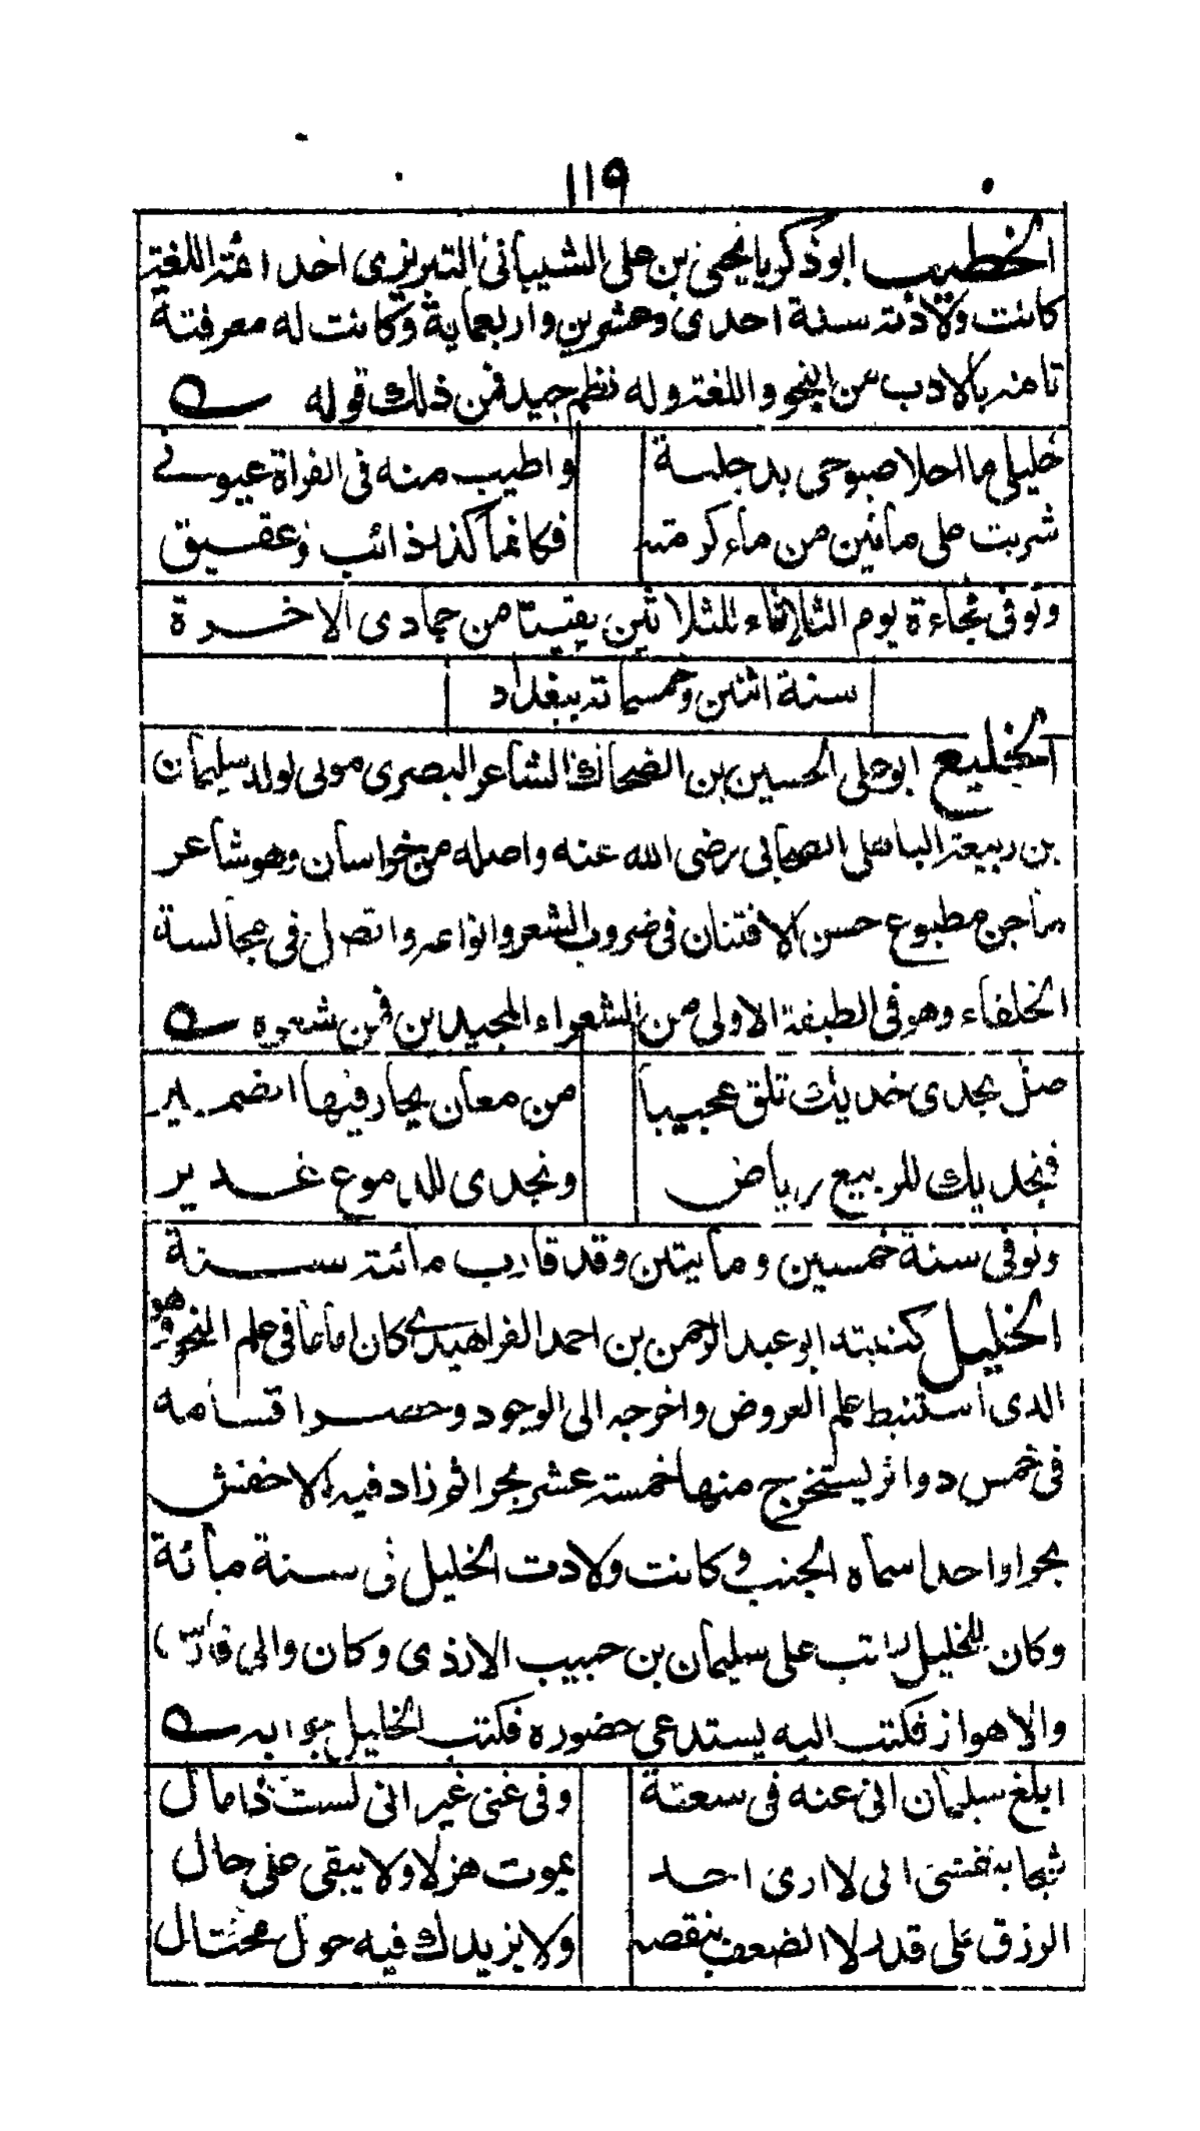 ١١٩
الخطيب ابوذكريا يحيى بن على الشيبانى التبريزى احد ائمة اللغة
كانت ولادته سنة احدى وعشرين واربعماية وكانت له معرفتة
تامة بالادب من النحو واللغة وله نظم جيد فمن ذلك قوله
خليلى ما احلا صبوحى بدجلة واطيب منه فى الفراة غبوقى
شربت على مائين من ماء كرمته فكانما كذلذائب وعقيق
وتوفى فجاءة يوم الثلاثاء للثلاثين بقيتا من جمادى الاخرة
سنة اثنين وخمسمائة ببغداد
الخليع ابوعلى الحسين بن الضحاك الشاعر البصرى مولى لولد سليمان
بن ربيعة الباهلى الصحابى رضى الله عنه واصله من خواسان وهو شاعر
ماجن مطبوع حسن الافتنان فى ضروب الشعر وانواعه واتصل فى مجالسة
الخلفاء وهو فى الطبقة الاولى من الشعراء المجيدين فمن شعره
صل بخدى خديك تلق عجيبا من معان يحار فيها الضمير
فبخديك للربيع رياض وبخدى للدموع غدير
وتوفى سنة خمسين ومايتين وقد قارب مائة سنة
الخليل كنيته ابو عبد الرحمن بن احمد الفراهيدى كان اماما فى علم النحو وهو
الدى استنبط علم العروض واخرجه الى الوجود وحصر اقسامه
فى خمس دوائر يستخرج منها خمسة عشر بحرا ثم زاد فيه الاخفش
بحرا واحدا سماه الجنب وكانت ولادت الخليل فى سنة مبائة
وكان للخليل راتب على سليمان بن حبيب الازدى وكان والى فارس
والاهواز فكتب اليه يستدعى حضوره فكتب الخليل جوابه
ابلغ سليمان انى عنه فى سعة وفى غنى غير انى لست ذا مال
شحا بنفسى انى لا ارى احد يموت هزلا ولا يبقى على حال
الرزق على قدر لا الضعف ينقصه ولا يزيدك فيه حول محتال